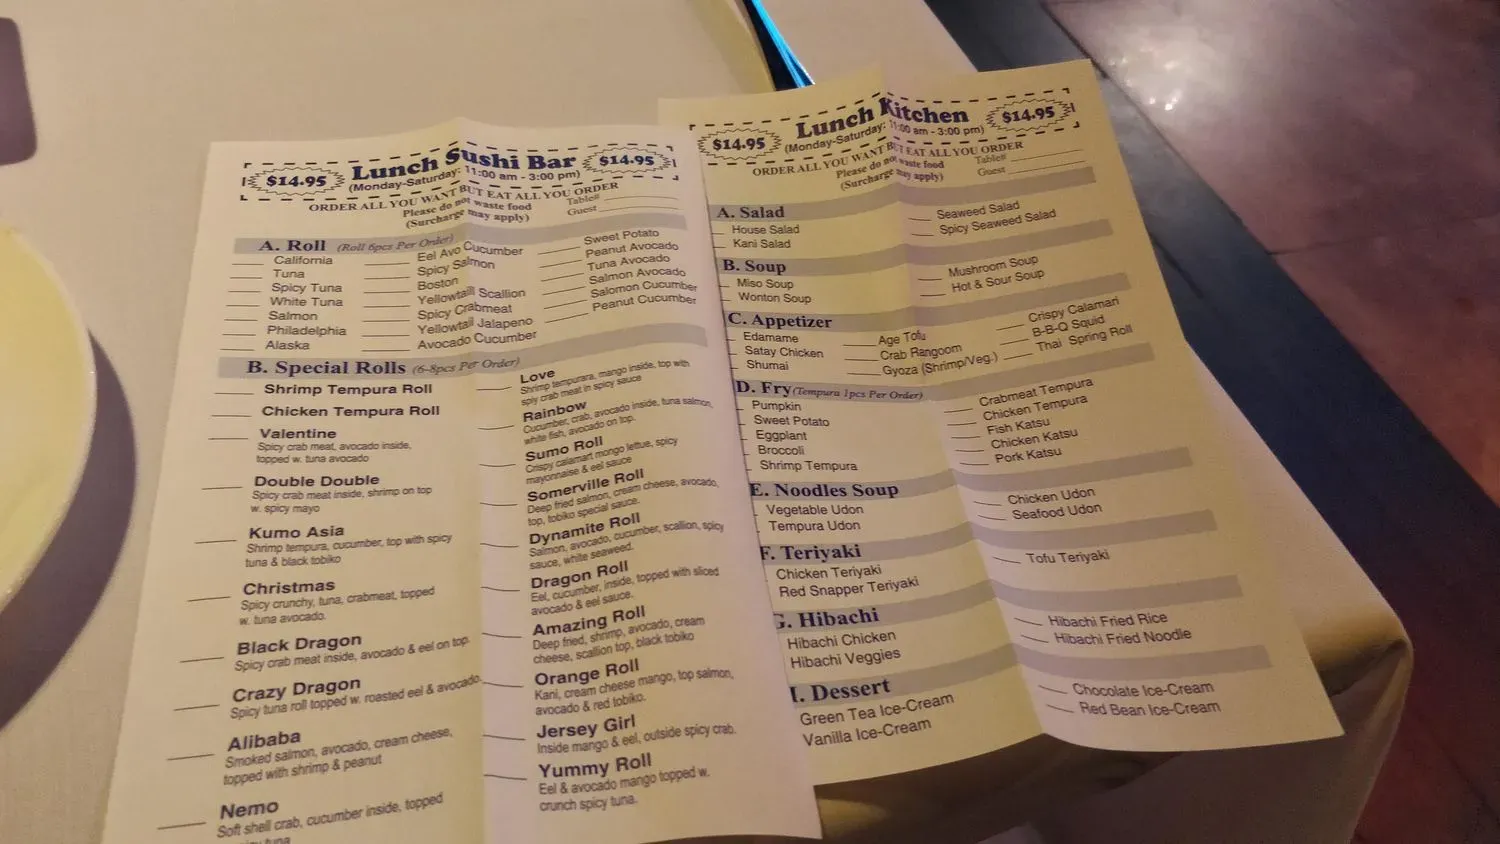 $14.95 Lunch Sushi Bar $14.95
(Monday-Saturday: 11:00 am - 3:00 pm)
ORDER ALL YOU WANT BUT EAT ALL YOU ORDER
Please do not waste food
(Surcharge may apply)
Table#
Guest
A. Roll (Roll 6pcs Per Order)
California
Tuna
Spicy Tuna
White Tuna
Salmon
Philadelphia
Alaska
Eel Avo Cucumber
Spicy Salmon
Boston
Yellowtaill Scallion
Spicy Crabmeat
Yellowtail Jalapeno
Avocado Cucumber
Sweet Potato
Peanut Avocado
Tuna Avocado
Salmon Avocado
Salomon Cucumber
Peanut Cucumber
B. Special Rolls (6-8pcs Per Order)
Shrimp Tempura Roll
Chicken Tempura Roll
Valentine
Spicy crab meat, avocado inside,
topped w. tuna avocado
Double Double
Spicy crab meat inside, shrimp on top
w. spicy mayo
Kumo Asia
Shrimp tempura, cucumber, top with spicy
tuna & black tobiko
Christmas
Spicy crunchy, tuna, crabmeat, topped
w. tuna avocado.
Black Dragon
Spicy crab meat inside, avocado & eel on top.
Crazy Dragon
Spicy tuna roll topped w. roasted eel & avocado.
Alibaba
Smoked salmon, avocado, cream cheese,
topped with shrimp & peanut
Nemo
Soft shell crab, cucumber inside, topped
tuna
Love
Shrimp tempurara, mango inside, top with
spiy crab meat in spicy sauce
Rainbow
Cucumber, crab, avocado inside, tuna salmon,
white fish, avocado on top.
Sumo Roll
Crispy calamart mongo lettue, spicy
mayonnaise & eel sauce
Somerville Roll
Deep fried salmon, cream cheese, avocado,
top, tobiko special sauce.
Dynamite Roll
Salmon, avocado, cucumber, scallion, spicy
sauce, white seaweed.
Dragon Roll
Eel, cucumber, inside, topped with sliced
avocado & eel sauce.
Amazing Roll
Deep fried, shrimp, avocado, cream
cheese, scallion top, black tobiko
Orange Roll
Kani, cream cheese mango, top salmon,
avocado & red tobiko.
Jersey Girl
Inside mango & eel, outside spicy crab.
Yummy Roll
Eel & avocado mango topped w.
crunch spicy tuna.
$14.95 Lunch Kitchen $14.95
(Monday-Saturday: 11:00 am - 3:00 pm)
ORDER ALL YOU WANT BUT EAT ALL YOU ORDER
Please do not waste food
(Surcharge may apply)
Table#
Guest
A. Salad
House Salad
Kani Salad
Seaweed Salad
Spicy Seaweed Salad
B. Soup
Miso Soup
Wonton Soup
Mushroom Soup
Hot & Sour Soup
C. Appetizer
Edamame
Satay Chicken
Shumai
Age Tofu
Crab Rangoom
Gyoza (Shrimp/Veg.)
Crispy Calamari
B-B-Q Squid
Thai Spring Roll
D. Fry (Tempura 1pcs Per Order)
Pumpkin
Sweet Potato
Eggplant
Broccoli
Shrimp Tempura
Crabmeat Tempura
Chicken Tempura
Fish Katsu
Chicken Katsu
Pork Katsu
E. Noodles Soup
Vegetable Udon
Tempura Udon
Chicken Udon
Seafood Udon
F. Teriyaki
Chicken Teriyaki
Red Snapper Teriyaki
Tofu Teriyaki
G. Hibachi
Hibachi Chicken
Hibachi Veggies
Hibachi Fried Rice
Hibachi Fried Noodle
I. Dessert
Green Tea Ice-Cream
Vanilla Ice-Cream
Chocolate Ice-Cream
Red Bean Ice-Cream